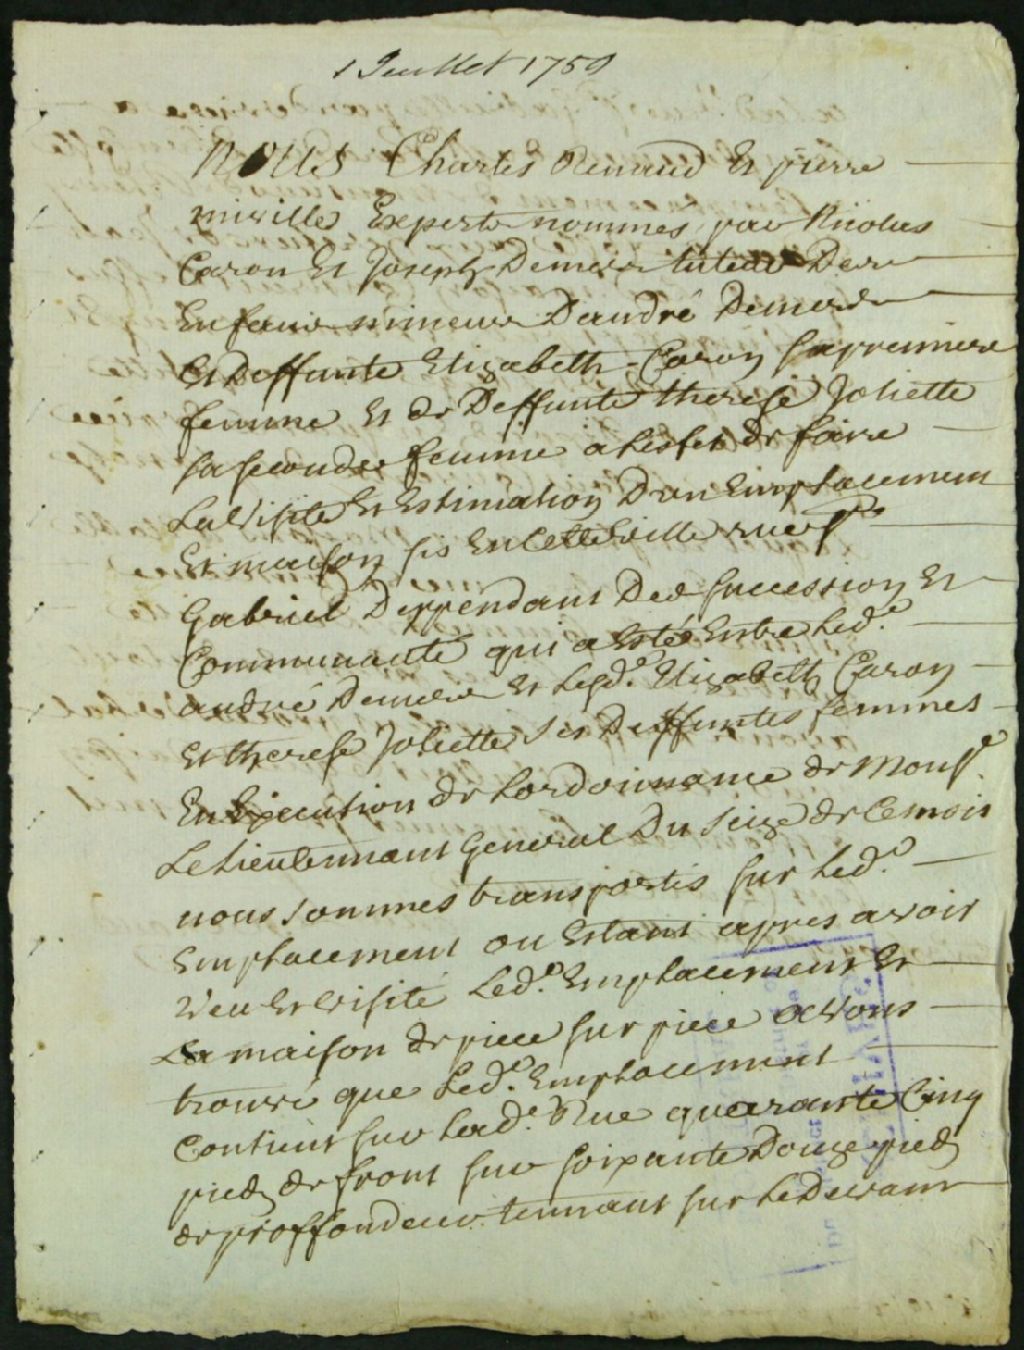 1 Juillet 1759
Nous Charles Renaud Et pierre
miville Experts nommes par Nicolas
Caron Et Joseph Demers tuteur Des
Enfans mineurs D'andré Demers
Et Deffunte Elizabeth Caron sa premiere
femme Et de Deffunte therese Joliette
sa seconde femme a leffet de faire
La Visite Et Estimation D'un Emplacement
Et maison sis En Cette Ville rue St
Gabriel Deppendant Des succession Et
Communauté qui a Esté Entre led.
andré Demers Et lesd. Elizabeth Caron
Et therese Joliette ses Deffuntes femmes
En Execution de Lordonnance de Monsr.
Le Lieutennant General Du seize de Ce mois
nous sommes transportés sur led.
Emplacement ou Estant apres avoir
Veu Et Visité Led. Emplacement Et
La maison de piece sur piece avons
trouvé que Led. Emplacement
Contient sur Lad. Rue quarante Cinq
pieds de front sur soixante Douze pieds
de proffondeur tennant sur Le Devant